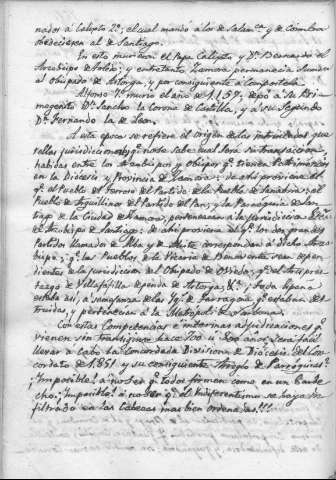 nados á Calixto 2º; el cual mandó á los de Salamca. y de Coimbra
obedecieran al de Santiago.
En esto murieron el Papa Calixto, y Dn. Bernardo el
Arzobispo de Toledo; y entretanto Zamora permanecia
al Obispado de Astorga, y por consiguiente á Compostela.
Alfonso 7º murió el año de 1157, y dejó á su Pri-
mogenito Dn. Sancho la Corona de Castilla, y á su Segundo
Dn. Fernando la de Leon.
A esta epoca se refiere el origen de las
rellas jurisdiccionales, qe. no se sabe cual sea su transaccion
habidas entre los Arzobispos y Obispos qe. tienen
en la Diócesis y Provincia de Zamora: de ahi proviene el
qe. el Pueblo del Terroso del Partido de la Puebla de Sanabria; el
Pueblo de Arquillinos del Partido del Pan; y la Parroquia de San-
tiago de la Ciudad de Zamora, pertenezcan á la jurisdiccion
de Arzobispo de Santiago: de ahi proviene el qe. los dos grandes
Partidos llamados de Alba y de Aliste correspondan á dicho Arzo-
bispo; qe. los Pueblos de la Vicaria de Benavente sean depen-
dientes de la jurisdiccion del Obispado de Oviedo; qe. el Arcipres-
tazgo de Villafafila dependa de Astorga, &ª;
estaba asi, á semejanza de las Ygs. de Tarragona qe. estaban des-
truidas, y pertenecian á la Metropol. de Narbona.
Con estas Competencias é internas adjudicaciones qe.
vienen sin transigirse hace 700 ú 800 años, será facil
llevar á cabo la Concordada Division de Diócesis del Con-
cordato de 1851 y su consiguiente Arreglo de Parroquias?
¡Ymposible! á no ser qe. todos firmen como en un Barbe-
cho. ¡Ymposible! á no ser qe. el Yndiferentismo se haya in-
filtrado en las Cabezas mas bien ordenadas!!!